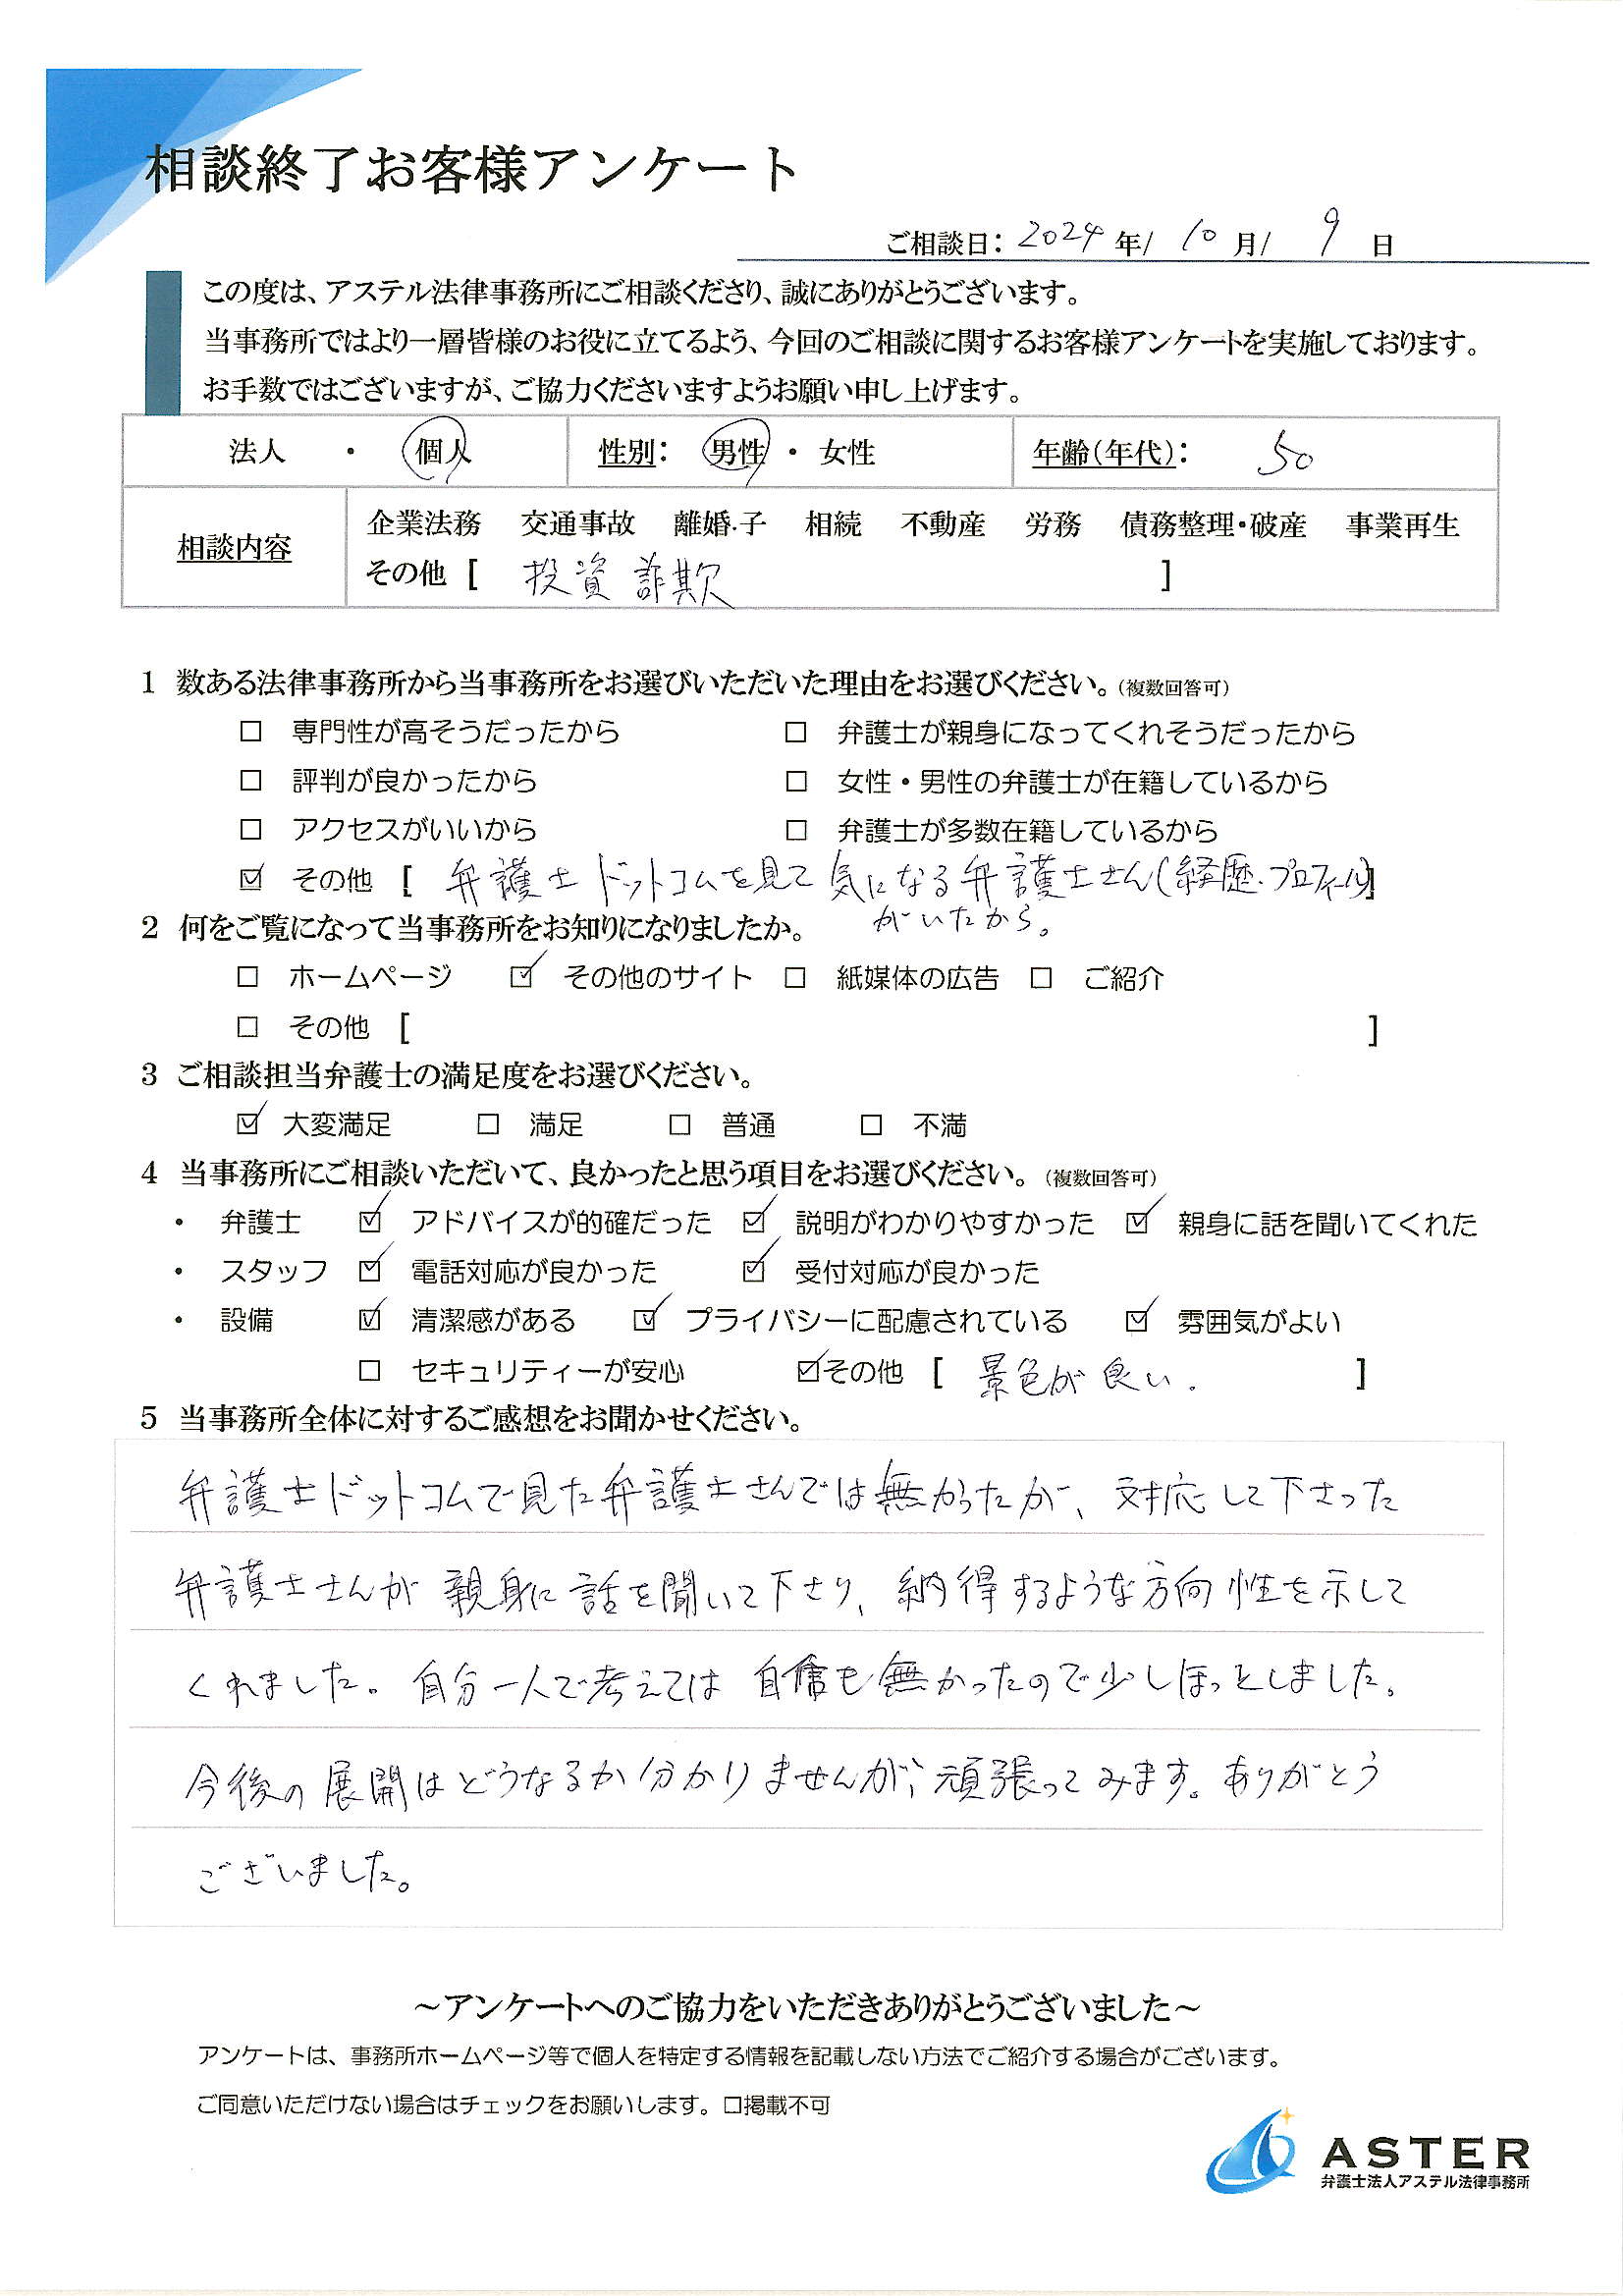 相談終了お客様アンケート
ご相談日： 2024 年/ 10 月/ 9 日
この度は、アステル法律事務所にご相談くださり、誠にありがとうございます。
当事務所ではより一層皆様のお役に立てるよう、今回のご相談に関するお客様アンケートを実施しております。
お手数ではございますが、ご協力くださいますようお願い申し上げます。
法人 ・ 個人 性別： 男性 ・ 女性 年齢（年代）： 50
相談内容 企業法務 交通事故 離婚・子 相続 不動産 労務 債務整理・破産 事業再生
その他 [ 投資詐欺 ]
1 数ある法律事務所から当事務所をお選びいただいた理由をお選びください。（複数回答可）
☐ 専門性が高そうだったから ☐ 弁護士が親身になってくれそうだったから
☐ 評判が良かったから ☐ 女性・男性の弁護士が在籍しているから
☐ アクセスがいいから ☐ 弁護士が多数在籍しているから
☑ その他 [ 弁護士ドットコムを見て気になる弁護士さん(経歴・プロフィール)]
がいたから。
2 何をご覧になって当事務所をお知りになりましたか。
☐ ホームページ ☑ その他のサイト ☐ 紙媒体の広告 ☐ ご紹介
☐ その他 [ ]
3 ご相談担当弁護士の満足度をお選びください。
☑ 大変満足 ☐ 満足 ☐ 普通 ☐ 不満
4 当事務所にご相談いただいて、良かったと思う項目をお選びください。（複数回答可）
・ 弁護士 ☑ アドバイスが的確だった ☑ 説明がわかりやすかった ☑ 親身に話を聞いてくれた
・ スタッフ ☑ 電話対応が良かった ☑ 受付対応が良かった
・ 設備 ☑ 清潔感がある ☑ プライバシーに配慮されている ☑ 雰囲気がよい
☐ セキュリティーが安心 ☑その他 [ 景色が良い. ]
5 当事務所全体に対するご感想をお聞かせください。
弁護士ドットコムで見た弁護士さんでは無かったが、対応して下さった
弁護士さんが親身に話を聞いて下さり、納得するような方向性を示して
くれました。自分一人で考えては自信も無かったので少しほっとしました。
今後の展開はどうなるか分かりませんが、頑張ってみます。ありがとう
ございました。
～アンケートへのご協力をいただきありがとうございました～
アンケートは、事務所ホームページ等で個人を特定する情報を記載しない方法でご紹介する場合がございます。
ご同意いただけない場合はチェックをお願いします。☐掲載不可
ASTER
弁護士法人アステル法律事務所